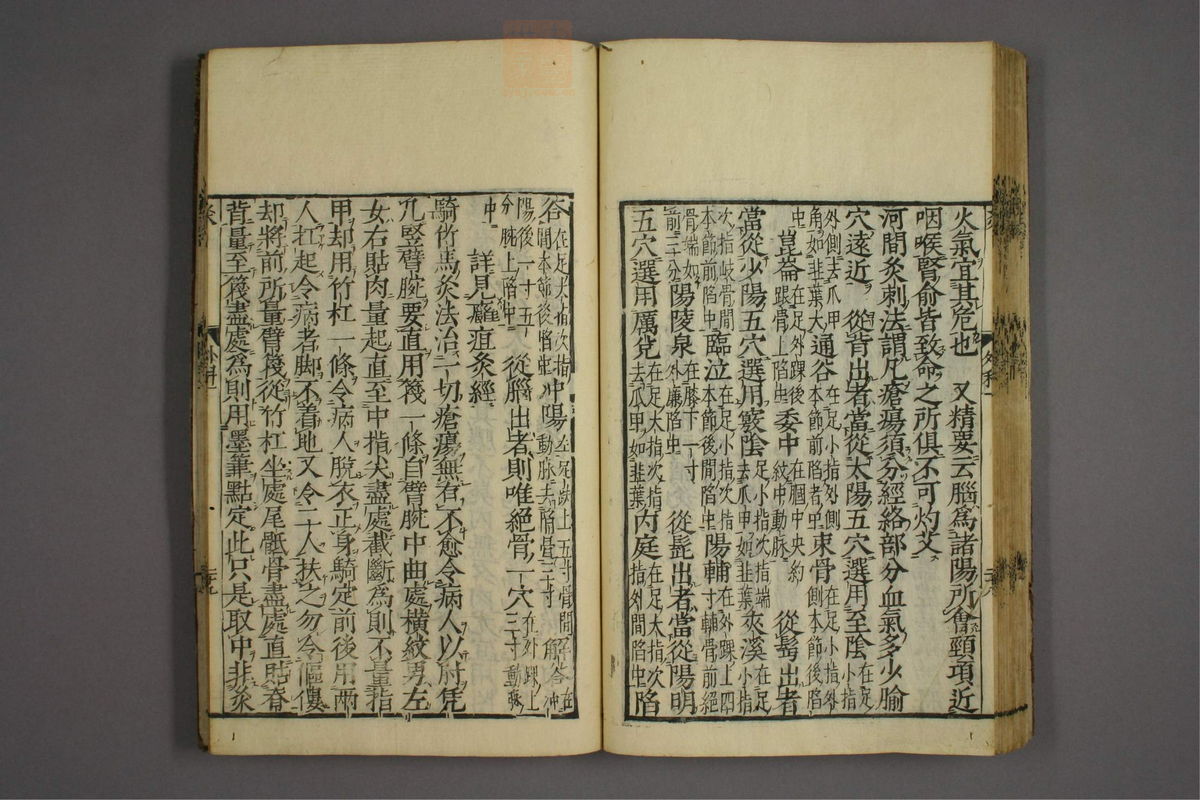 火氣宜其危也　又精要云腦爲諸陽所會頸項近
咽喉腎俞皆致命之所俱不可灼艾
河間灸刺法謂凡瘡瘍須分經絡部分血氣多少腧
穴遠近　從背出者當從太陽五穴選用至陰在足小指
外側去爪甲
角如韭葉大通谷在足小指外側
本節前陷者中束骨在足小指外
側本節後陷
中崑崙在足外踝後
跟骨上陷中委中在膕中央約
紋中動脉　從髩出者
當從少陽五穴選用竅陰足小指次指端
去爪甲如韭葉夾溪在足小指
次指岐骨間
本節前陷中臨泣在足小指次指
本節後間陷中陽輔在外踝上四
寸輔骨前絕
骨端如
前三分陽陵泉在膝下一寸
外廉陷中　從髭出者當從陽明
五穴選用厲兌在足大指次指
去爪甲如韭葉內庭在足大指次
指外間陷中陷
谷在足大指次指
間本節後陷中冲陽在足趺上五寸骨間
動脉去陷骨三寸解谷在冲
陽後一寸五
分腕上陷中　從腦出者則唯絕骨一穴在外踝上
三寸動脉
中　詳見癰疽灸經
騎竹馬灸法治一切瘡瘍無有不愈令病人以肘凭
几竪臂腕要直用篾一條自臂腕中曲處橫紋男左
女右貼肉量起直至中指尖盡處截斷爲則不量指
甲却用竹杠一條令病人脫衣正身騎定前後用兩
人扛起令病者脚不着地又令二人扶之勿令傴僂
却將前所量臂篾從竹杠坐處尾骶骨盡處直貼脊
背量至篾盡處爲則用墨筆點定此只是取中非灸